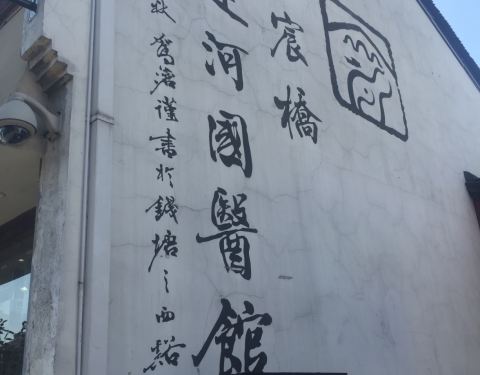 宸橋
運河國醫館
秋滄謹書於錢塘之西谿